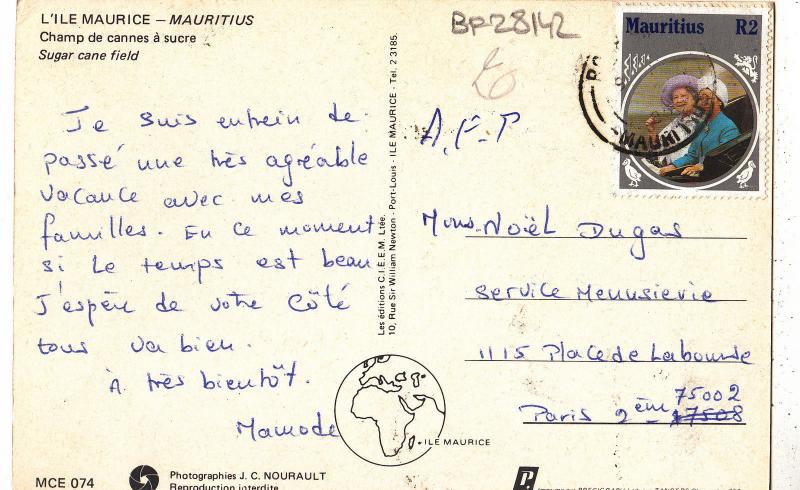 L'ILE MAURICE – MAURITIUS
Champ de cannes à sucre
Sugar cane field
Je suis entrein de
passé une très agréable
vacance avec mes
familles. En ce moment
si le temps est beau
J'espère de votre Côté
tous va bien.
À très bientôt.
Mamode
MCE 074
Photographies J. C. NOURAULT
Reproduction interdite
Les éditions C.I.E.E.M. Ltée.
10, Rue Sir William Newton - Port-Louis - ILE MAURICE - Tel. 2 3185.
ILE MAURICE
BF28142
A.F.P
Mauritius R2
MAURITIUS
Mons. Noël Dugas
Service Menuisierie
1115 Place de Labourse
75002
Paris 2 ém 17508